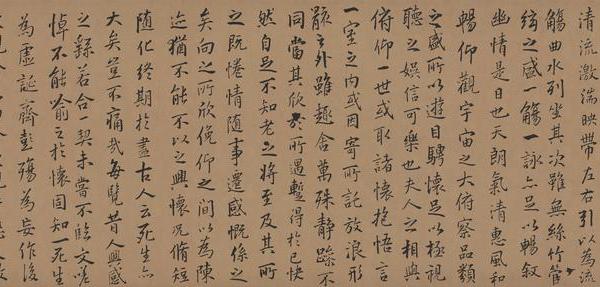 清流激湍映帶左右引以為流
觴曲水列坐其次雖無絲竹管
絃之盛一觴一詠亦足以暢敘
幽情是日也天朗氣清惠風和
暢仰觀宇宙之大俯察品類
之盛所以遊目騁懷足以極視
聽之娛信可樂也夫人之相與
俯仰一世或取諸懷抱悟言
一室之內或因寄所託放浪形
骸之外雖趣舍萬殊靜躁不
同當其欣於所遇蹔得於己快
然自足不知老之將至及其所
之既惓情隨事遷感慨係之
矣向之所欣俛仰之間以為陳
迹猶不能不以之興懷況脩短
隨化終期於盡古人云死生亦
大矣豈不痛哉每覽昔人興感
之繇若合一契未嘗不臨文嗟
悼不能喻之於懷固知一死生
為虛誕齊彭殤為妄作後